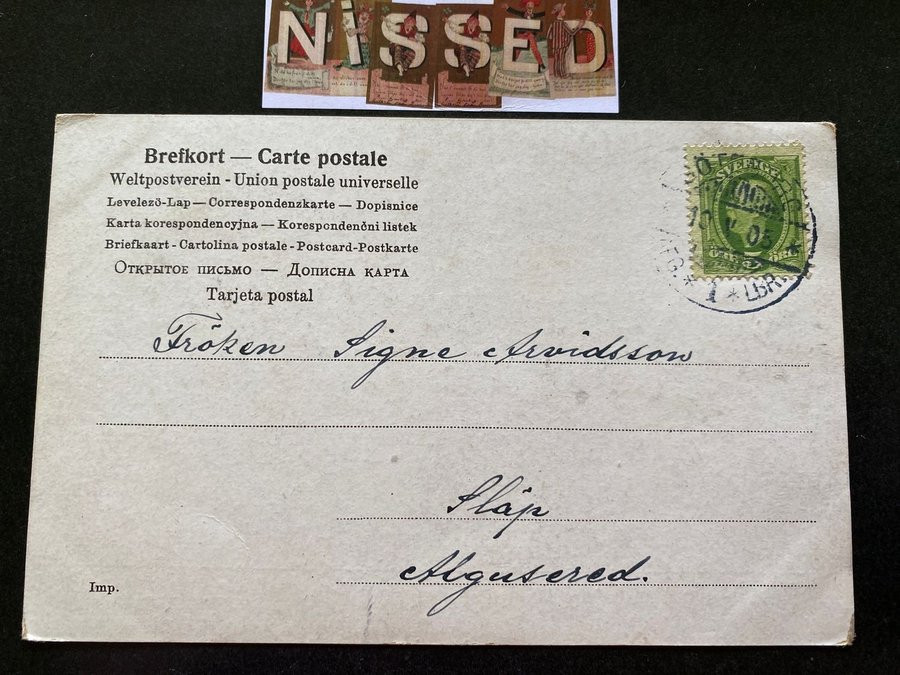 NISSED
Brefkort — Carte postale
Weltpostverein - Union postale universelle
Levelező-Lap — Correspondenzkarte — Dopisnice
Karta korespondencyjna — Korespondenční listek
Briefkaart - Cartolina postale - Postcard-Postkarte
Открытое письмо — Дописна карта
Tarjeta postal
SVERIGE
LBR.
Fröken Signe Arvidsson
Släp
Algusered.
Imp.